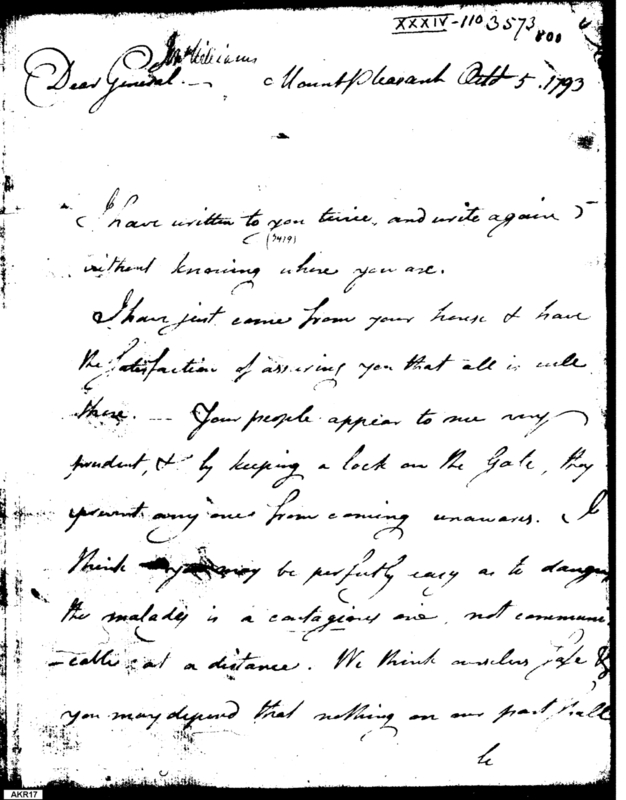 XXXIV-110 3573 800
Jon Williams
Dear General. — Mount Pleasant Octr 5. 1793
I have written to you twice, and write again
(3419)
without knowing where you are.
I have just come from your house & have
the Satisfaction of assuring you that all is well
there. — Your people appear to me very
prudent, & by keeping a lock on the Gate, they
prevent any one from coming unawares. I
think you may be perfectly easy as to danger
the malady is a contagious one, not communi
-cable at a distance. We think ourselves safe &
you may depend that nothing on our part shall
be
AKR17